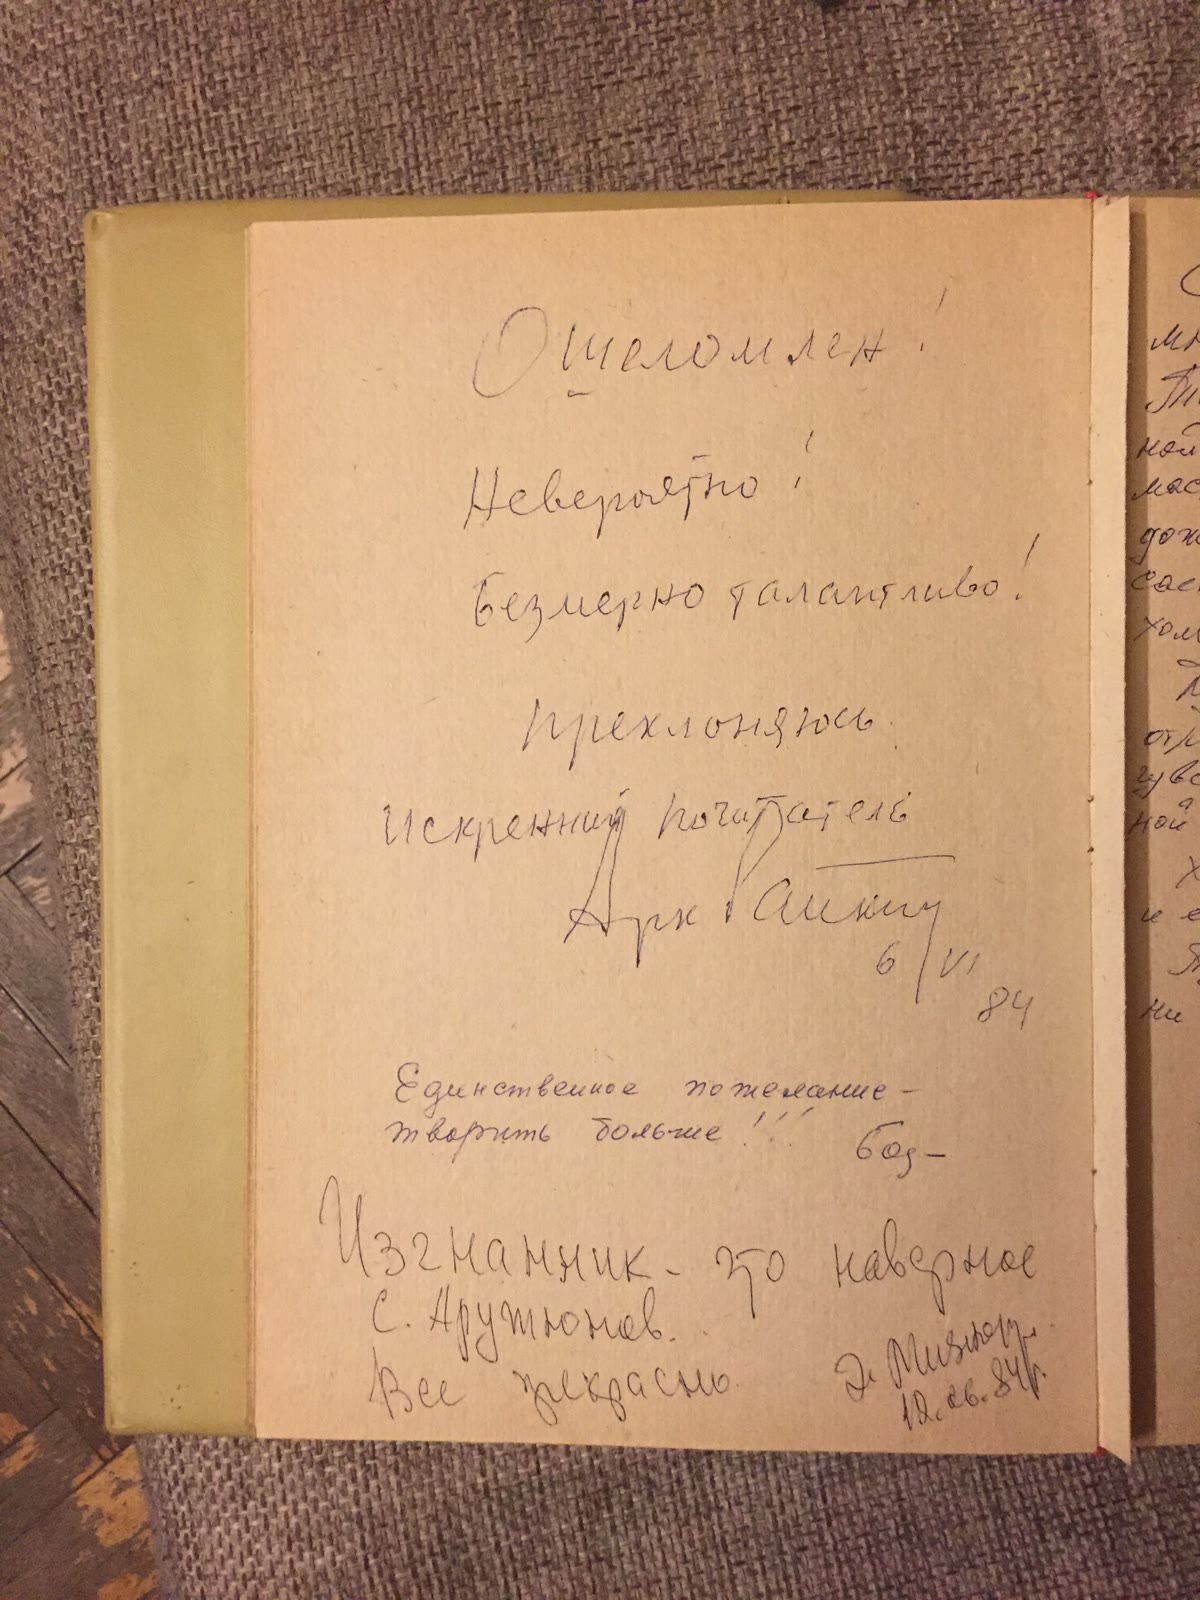 Ошеломлен!
Невероятно!
Безмерно талантливо!
Преклоняюсь.
Искренний почитатель
Арк Райкин
6/VI
84
Единственное пожелание –
творить больше!!!
Изгнанник – это наверное
С. Арутюнов.
Все прекрасно.
12.06.84г.
мн
ной
и е
ни